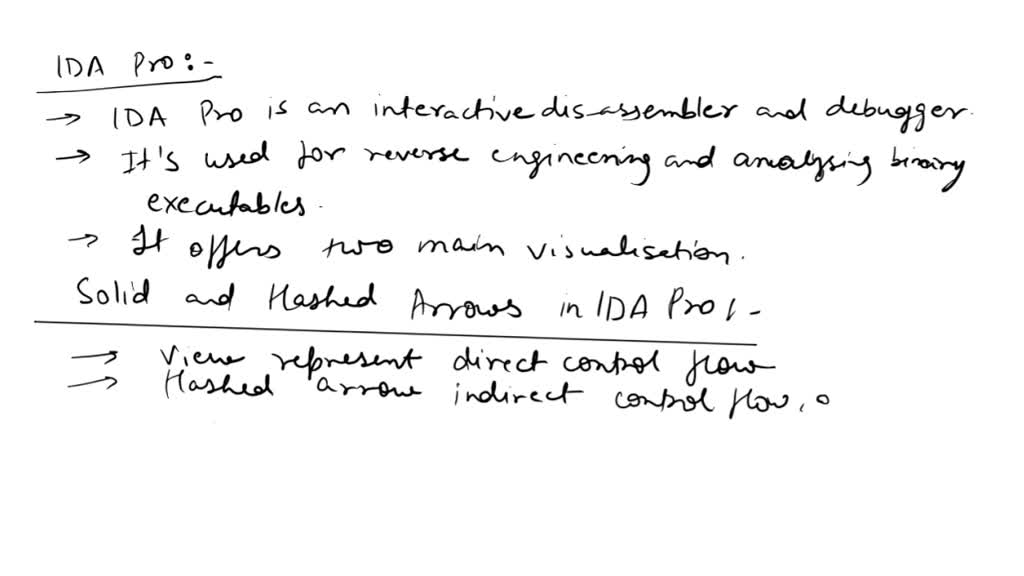 IDA Pro:-
→ IDA Pro is an interactive dis-assembler and debugger.
→ It's used for reverse engineering and analysing binary
executables.
→ It offers two main visualisation.
Solid and Hashed Arrows in IDA Pro:-
→ View represent direct control flow
→ Hashed arrow indirect control flow, o